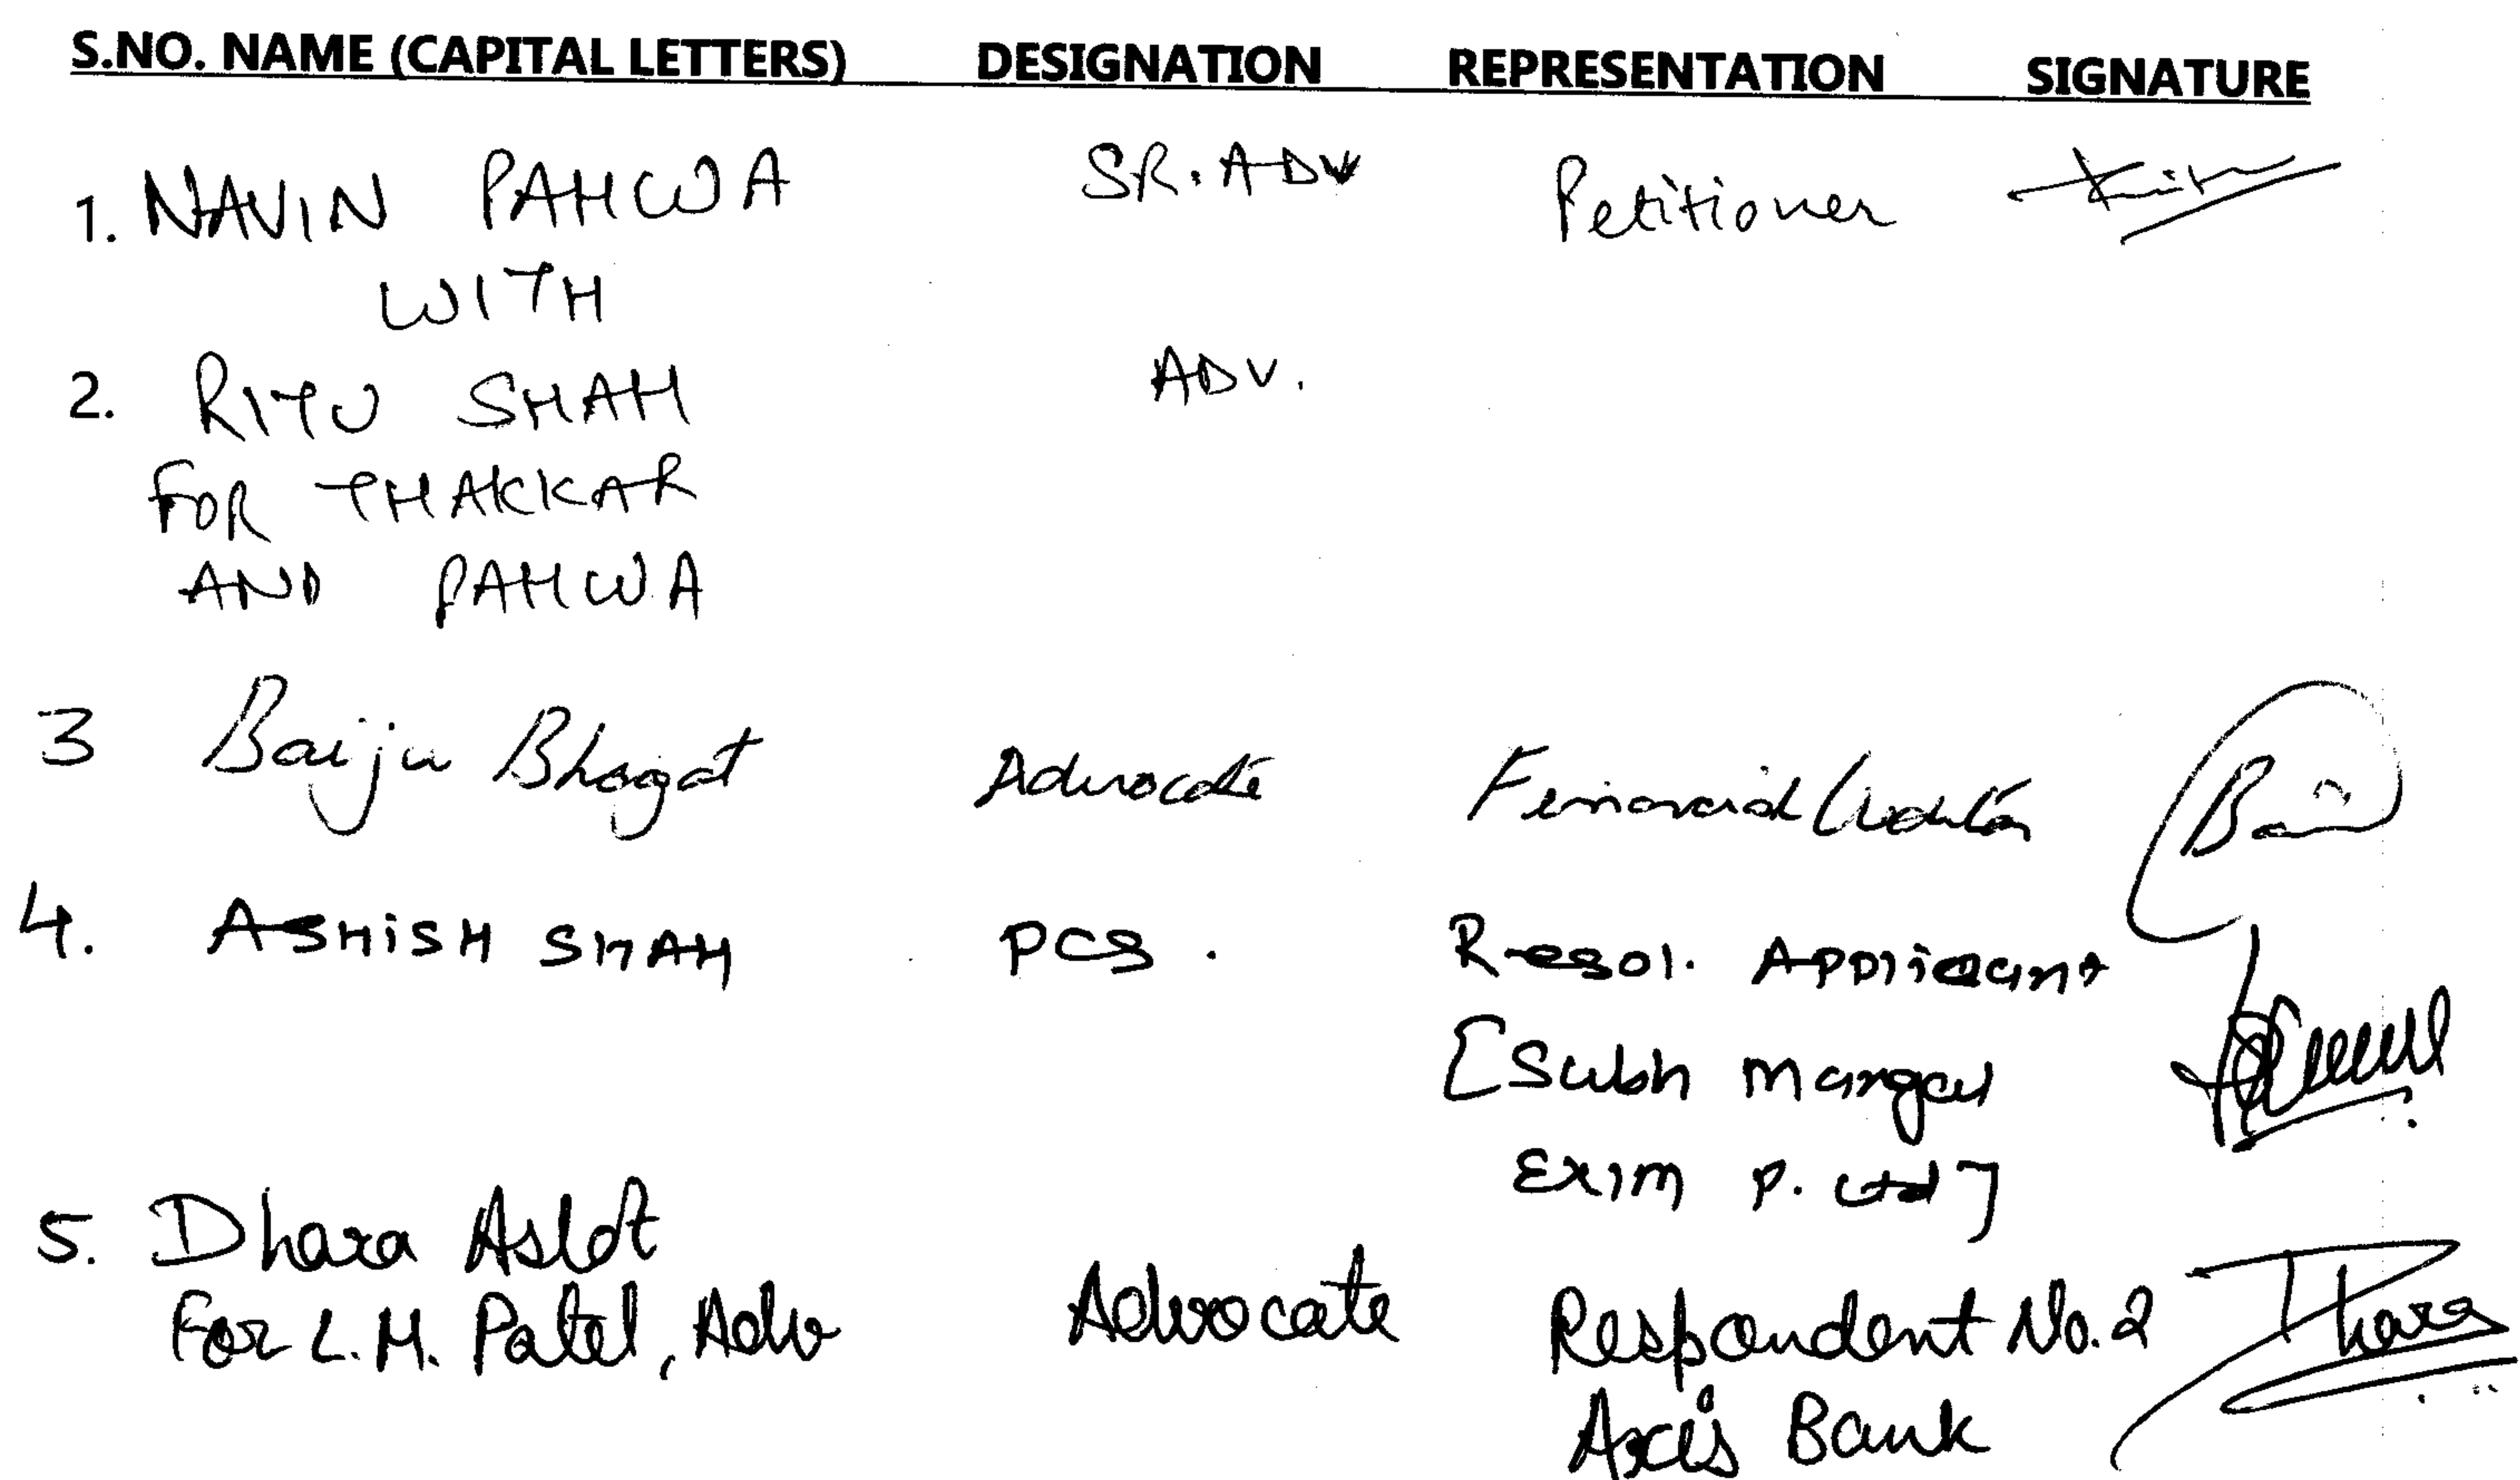 S.NO. NAME (CAPITAL LETTERS) DESIGNATION REPRESENTATION SIGNATURE
1. NAVIN PAHWA SR. ADV Petitioner
WITH
2. RITU SHAH ADV.
FOR THAKKAR
AND PAHWA
3 Baiju Bhagat Advocate Financial Creditor
4. ASHISH SHAH PCS. Resol. Applicant
[Subh Mangal
Exim P. Ltd]
5. Dhara Aslot
For L.M. Patel, Adv Advocate Respondent No. 2 Dhara
Axis Bank